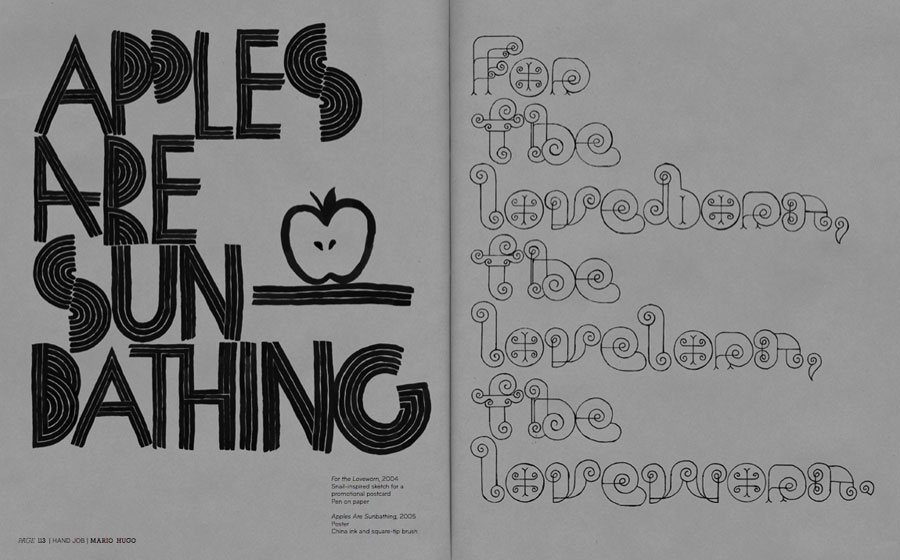 APPLES
ARE
SUN
BATHING
For the Loveworn, 2004
Snail-inspired sketch for a
promotional postcard
Pen on paper
Apples Are Sunbathing, 2005
Poster
China ink and square-tip brush
PAGE 113 | HAND JOB | MARIO HUGO
For
the
loveborn,
the
lovelorn,
the
loveworn.